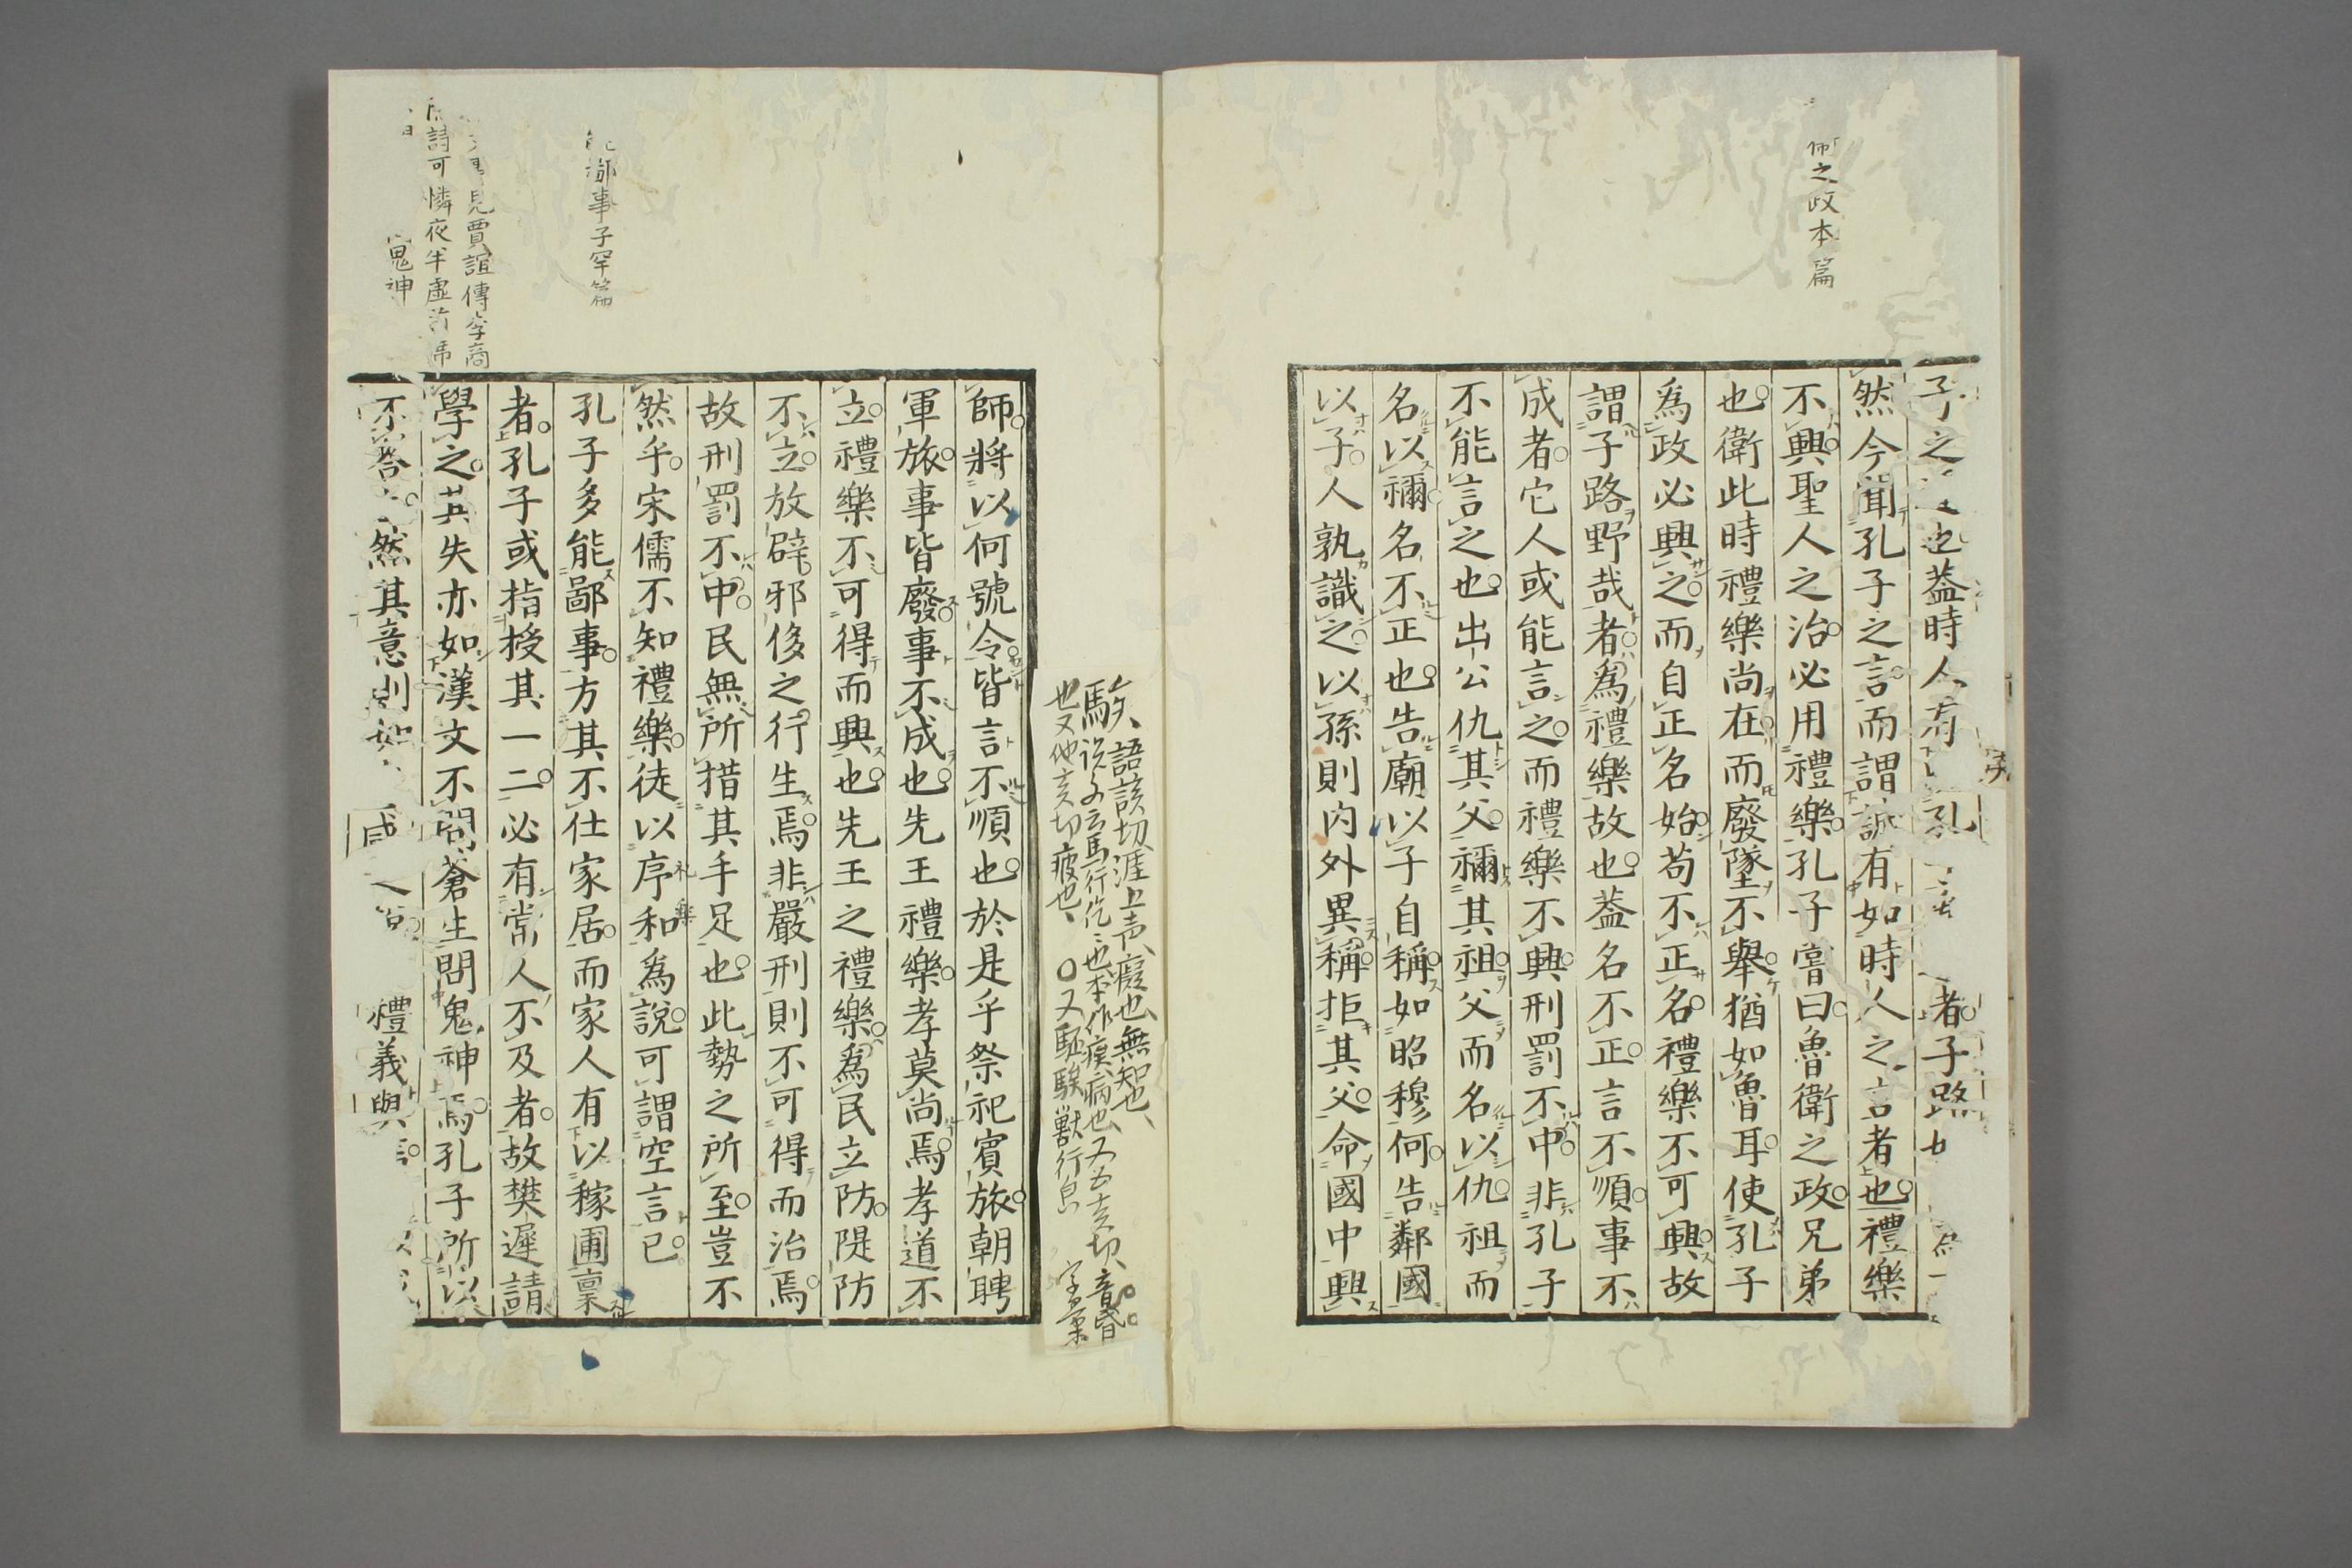 之政本篇
子之也蓋時人有孔者子路
然今聞孔子之言而謂誠有如時人之言者也禮樂
不興聖人之治必用禮樂孔子嘗曰魯衛之政兄弟
也衛此時禮樂尚在而廢墜不舉猶如魯耳使孔子
爲政必興之而自正名始苟不正名禮樂不可興故
謂子路野哉者爲禮樂故也蓋名不正言不順事不
成者它人或能言之而禮樂不興刑罰不中非孔子
不能言之也出公仇其父禰其祖父而名以仇祖而
名以禰名不正也告廟以子自稱如昭穆何告鄰國
以子人孰識之以孫則內外異稱拒其父命國中興
駭語該切涯上声癡也無知也
説文云馬行仡也本作病也又五亥切音
也又他亥切疲也〇又駓騃獸行皃 字彙
師將以何號令皆言不順也於是乎祭祀賓旅朝聘
軍旅事皆廢事不成也先王禮樂孝莫尚焉孝道不
立禮樂不可得而興也先王之禮樂爲民立防隄防
不立放辟邪侈之行生焉非嚴刑則不可得而治焉
故刑罰不中民無所措其手足也此勢之所至豈不
然乎宋儒不知禮樂徒以序和爲說可謂空言已
孔子多能鄙事方其不仕家居而家人有以稼圃稟
者孔子或指授其一二必有常人不及者故樊遲請
學之其失亦如漢文不問蒼生問鬼神焉孔子所以
不答然其意則如禮義與
鄙事子罕篇
見賈誼傳李商
詩可憐夜半虛前席
鬼神